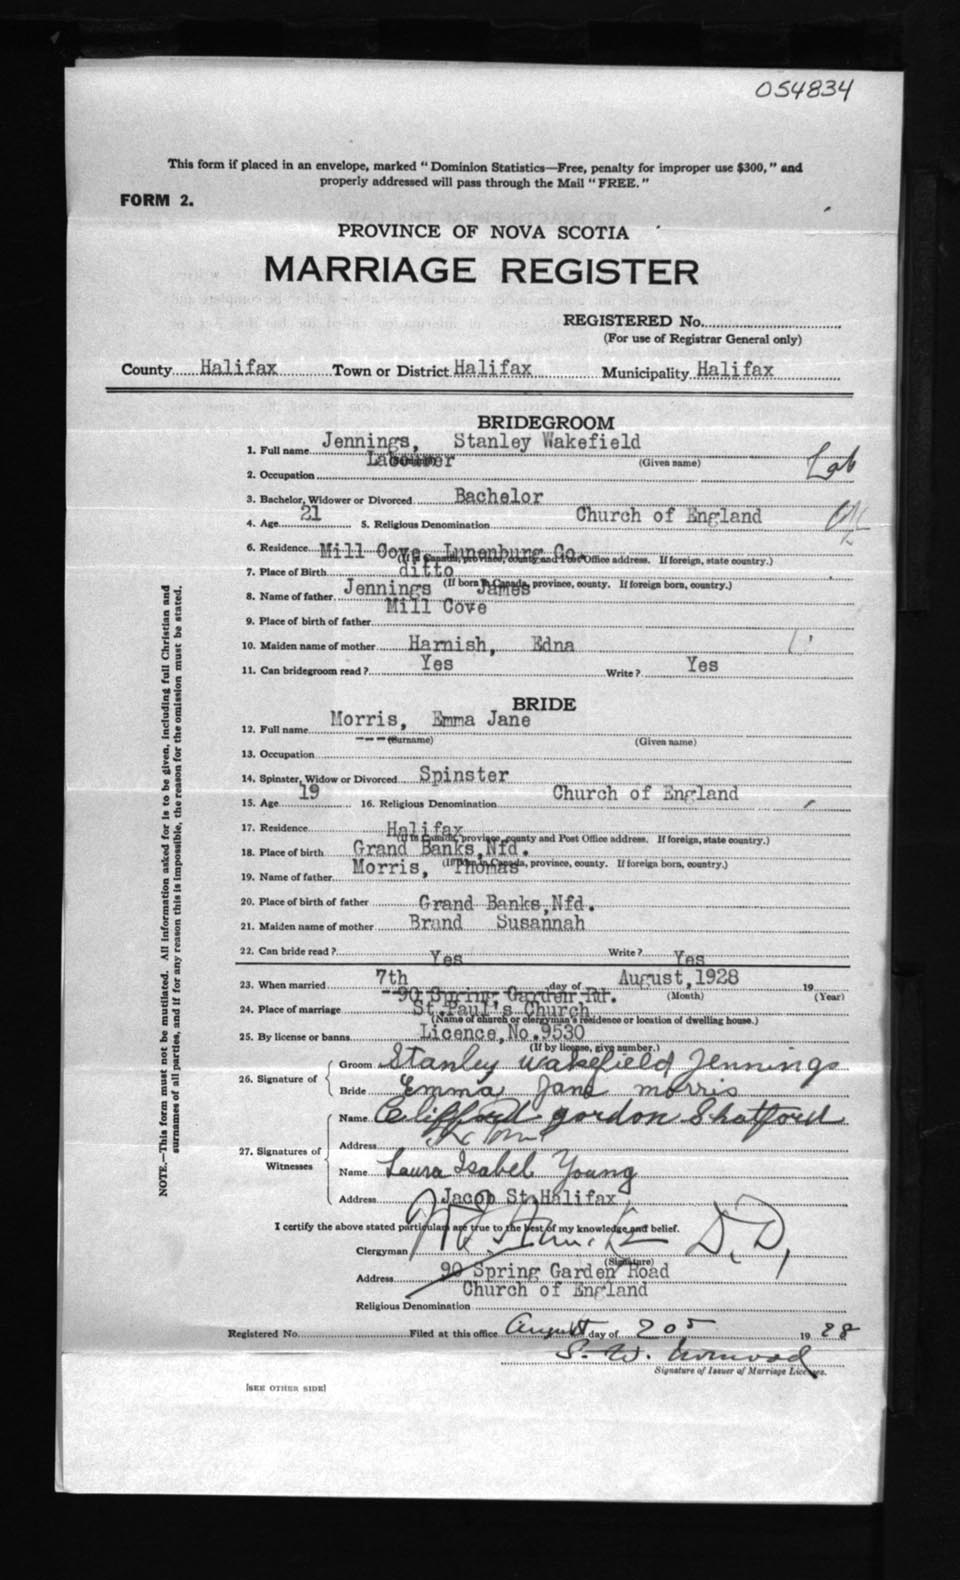 054834
This form if placed in an envelope, marked "Dominion Statistics—Free, penalty for improper use $300," and
properly addressed will pass through the Mail "FREE."
FORM 2.
PROVINCE OF NOVA SCOTIA
MARRIAGE REGISTER
REGISTERED No.
(For use of Registrar General only)
County Halifax Town or District Halifax Municipality Halifax
BRIDEGROOM
1. Full name Jennings, Stanley Wakefield
(Given name)
2. Occupation Labourer Lab
3. Bachelor, Widower or Divorced Bachelor
4. Age 21 5. Religious Denomination Church of England
6. Residence Mill Cove, Lunenburg Co.
(If in Canada, province, county and Post Office address. If foreign, state country.)
7. Place of Birth ditto
(If born in Canada, province, county. If foreign born, country.)
8. Name of father Jennings James
9. Place of birth of father Mill Cove
10. Maiden name of mother Harnish, Edna
11. Can bridegroom read? Yes Write? Yes
BRIDE
12. Full name Morris, Emma Jane
(Surname) (Given name)
13. Occupation ---
14. Spinster, Widow or Divorced Spinster
15. Age 19 16. Religious Denomination Church of England
17. Residence Halifax
(If in Canada, province, county and Post Office address. If foreign, state country.)
18. Place of birth Grand Banks, Nfd.
(If born in Canada, province, county. If foreign born, country.)
19. Name of father Morris, Thomas
20. Place of birth of father Grand Banks, Nfd.
21. Maiden name of mother Brand Susannah
22. Can bride read? Yes Write? Yes
23. When married 7th day of August, 1928 19
(Month) (Year)
--90 Spring Garden Rd.
24. Place of marriage St. Paul's Church
(Name of church or clergyman's residence or location of dwelling house.)
25. By license or banns Licence, No. 9530
(If by license, give number.)
26. Signature of
Groom Stanley Wakefield Jennings
Bride Emma Jane Morris
27. Signatures of
Witnesses
Name Clifford Gordon Shatford
Address
Name Laura Isabel Young
Address Jacob St, Halifax
I certify the above stated particulars are true to the best of my knowledge and belief.
Clergyman D.D.
(Signature)
Address 90 Spring Garden Road
Church of England
Religious Denomination
Registered No. Filed at this office August day of 20 1928
S. W.
Signature of Issuer of Marriage Licenses.
[SEE OTHER SIDE]
NOTE.—This form must not be mutilated. All information asked for is to be given, including full Christian and
surnames of all parties, and if for any reason this is impossible, the reason for the omission must be stated.